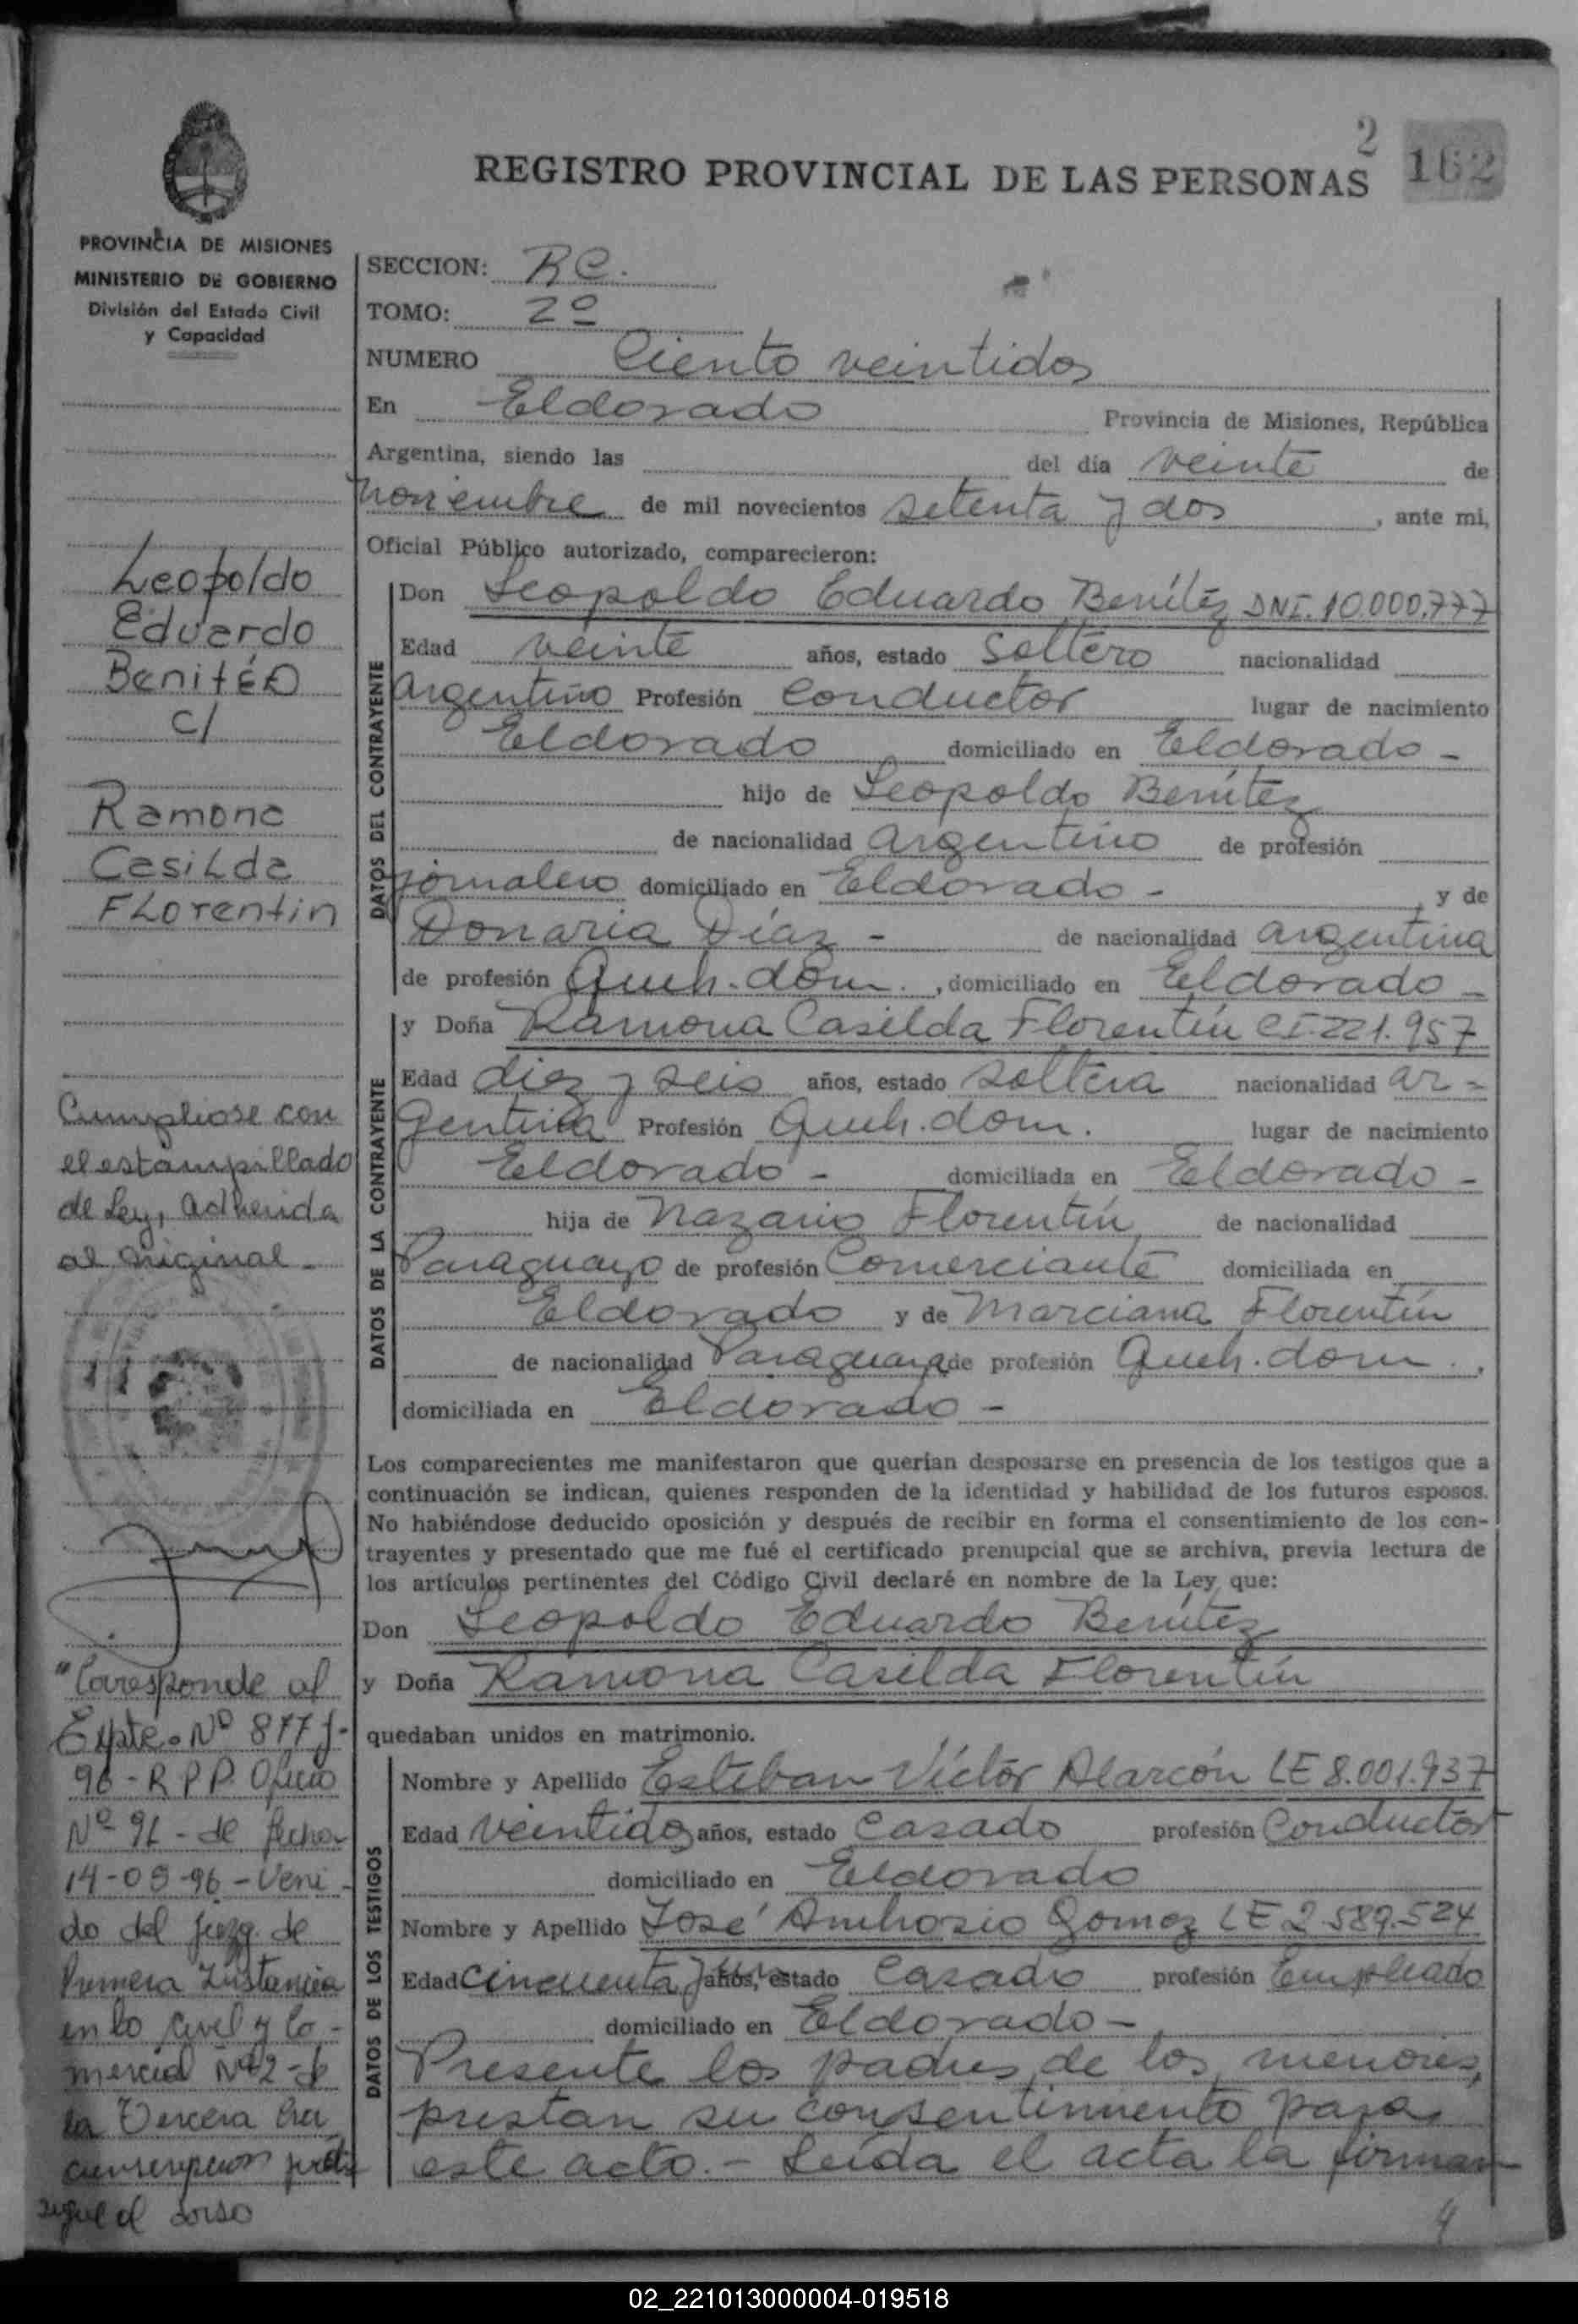 2 162
REGISTRO PROVINCIAL DE LAS PERSONAS
PROVINCIA DE MISIONES
MINISTERIO DE GOBIERNO
División del Estado Civil
y Capacidad
Leopoldo
Eduardo
Benítez
c/
Ramona
Casilda
Florentin
Cumpliose con
el estampillado
de Ley, adherida
al original -
"Corresponde al
Expte. Nº 877
96 - R P P. Oficio
Nº 91 - de fecha
14-05-96 - Veni
do del juzg. de
Primera Instancia
en lo civil y Co-
mercial Nº 2 - de
la Tercera Cir
cunscripcion judi
sigue al dorso
SECCION: RC.
TOMO: 2º
NUMERO Ciento veintidos
En Eldorado Provincia de Misiones, República
Argentina, siendo las del día veinte de
noviembre de mil novecientos setenta y dos, ante mi,
Oficial Público autorizado, comparecieron:
DATOS DEL CONTRAYENTE
Don Leopoldo Eduardo Benítez DNI. 10.000.777
Edad veinte años, estado soltero nacionalidad
argentino Profesión conductor lugar de nacimiento
Eldorado domiciliado en Eldorado -
hijo de Leopoldo Benítez
de nacionalidad argentino de profesión
jornalero domiciliado en Eldorado - y de
Donaria Díaz - de nacionalidad argentina
de profesión Queh. dom., domiciliado en Eldorado -
DATOS DE LA CONTRAYENTE
y Doña Ramona Casilda Florentín CI 221.957
Edad diez y seis años, estado soltera nacionalidad ar-
gentina Profesión Queh. dom. lugar de nacimiento
Eldorado - domiciliada en Eldorado -
hija de Nazario Florentín de nacionalidad
Paraguayo de profesión Comerciante domiciliada en
Eldorado y de Marciana Florentín
de nacionalidad Paraguaya de profesión Queh. dom.,
domiciliada en Eldorado -
Los comparecientes me manifestaron que querían desposarse en presencia de los testigos que a
continuación se indican, quienes responden de la identidad y habilidad de los futuros esposos.
No habiéndose deducido oposición y después de recibir en forma el consentimiento de los con-
trayentes y presentado que me fué el certificado prenupcial que se archiva, previa lectura de
los artículos pertinentes del Código Civil declaré en nombre de la Ley, que:
Don Leopoldo Eduardo Benítez
y Doña Ramona Casilda Florentín
quedaban unidos en matrimonio.
DATOS DE LOS TESTIGOS
Nombre y Apellido Esteban Víctor Alarcón LE 8.001.937
Edad veintidos años, estado casado profesión Conductor
domiciliado en Eldorado
Nombre y Apellido José Ambrosio Gomez LE 2.589.524
Edad cincuenta y un años, estado casado profesión Empleado
domiciliado en Eldorado -
Presente los padres de los menores,
prestan su consentimiento para
este acto. - Leída el acta la firman
02_221013000004-019518